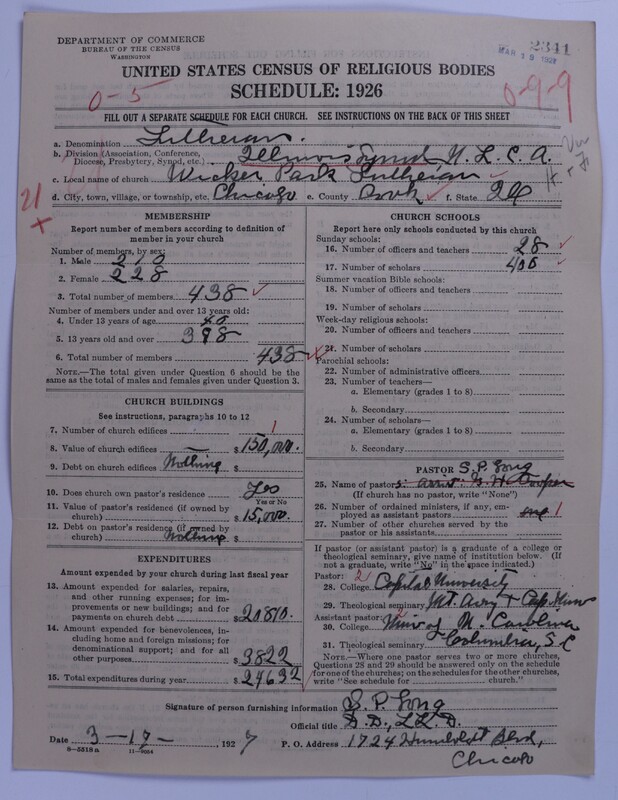 DEPARTMENT OF COMMERCE
BUREAU OF THE CENSUS
WASHINGTON
2341
MAR 19 1927
UNITED STATES CENSUS OF RELIGIOUS BODIES
SCHEDULE: 1926
0-5
0-9-9
FILL OUT A SEPARATE SCHEDULE FOR EACH CHURCH. SEE INSTRUCTIONS ON THE BACK OF THIS SHEET
a. Denomination Lutheran.
b. Division (Association, Conference, Diocese, Presbytery, Synod, etc.) Illinois Synod U. L. C. A.
c. Local name of church Wicker Park Lutheran
d. City, town, village, or township, etc. Chicago e. County Cook f. State Ill
21
x
MEMBERSHIP
Report number of members according to definition of
member in your church
Number of members, by sex:
1. Male 210
2. Female 228
3. Total number of members 438
Number of members under and over 13 years old:
4. Under 13 years of age 40
5. 13 years old and over 398
6. Total number of members 438
NOTE.—The total given under Question 6 should be
the same as the total of males and females given under Question 3.
CHURCH BUILDINGS
See instructions, paragraphs 10 to 12
7. Number of church edifices 1
8. Value of church edifices $150,000.
9. Debt on church edifices Nothing $
10. Does church own pastor's residence? Yes
Yes or No
11. Value of pastor's residence (if owned by
church) $15,000.
12. Debt on pastor's residence (if owned by
church) Nothing $
EXPENDITURES
Amount expended by your church during last fiscal year
13. Amount expended for salaries, repairs,
and other running expenses; for im-
provements or new buildings; and for
payments on church debt $20810.
14. Amount expended for benevolences,
including home and foreign missions; for
denominational support; and for all
other purposes $3822
15. Total expenditures during year $24632
CHURCH SCHOOLS
Report here only schools conducted by this church
Sunday schools:
16. Number of officers and teachers 28
17. Number of scholars 400
Summer vacation Bible schools:
18. Number of officers and teachers
19. Number of scholars
Week-day religious schools:
20. Number of officers and teachers
21. Number of scholars
Parochial schools:
22. Number of administrative officers
23. Number of teachers—
a. Elementary (grades 1 to 8)
b. Secondary
24. Number of scholars—
a. Elementary (grades 1 to 8)
b. Secondary
PASTOR S. P. Long
25. Name of pastor
(If church has no pastor, write "None")
26. Number of ordained ministers, if any, em-
ployed as assistant pastors one 1
27. Number of other churches served by the
pastor or his assistants
If pastor (or assistant pastor) is a graduate of a college or
theological seminary, give name of institution below. (If
not a graduate, write "No" in the space indicated.)
Pastor: 2
28. College Capital University
29. Theological seminary Mt. Airy & Cap. Univ
Assistant pastor:
30. College Univ of N. Carolina
31. Theological seminary Columbia, S.C
NOTE.—Where one pastor serves two or more churches,
Questions 28 and 29 should be answered only on the schedule
for one of the churches; on the schedules for the other churches,
write "See schedule for church."
Signature of person furnishing information S. P. Long
Official title D.D., LL.D.
Date 3-17-, 1927 P. O. Address 1724 Humboldt Blvd,
Chicago
8-5518a 11-9034